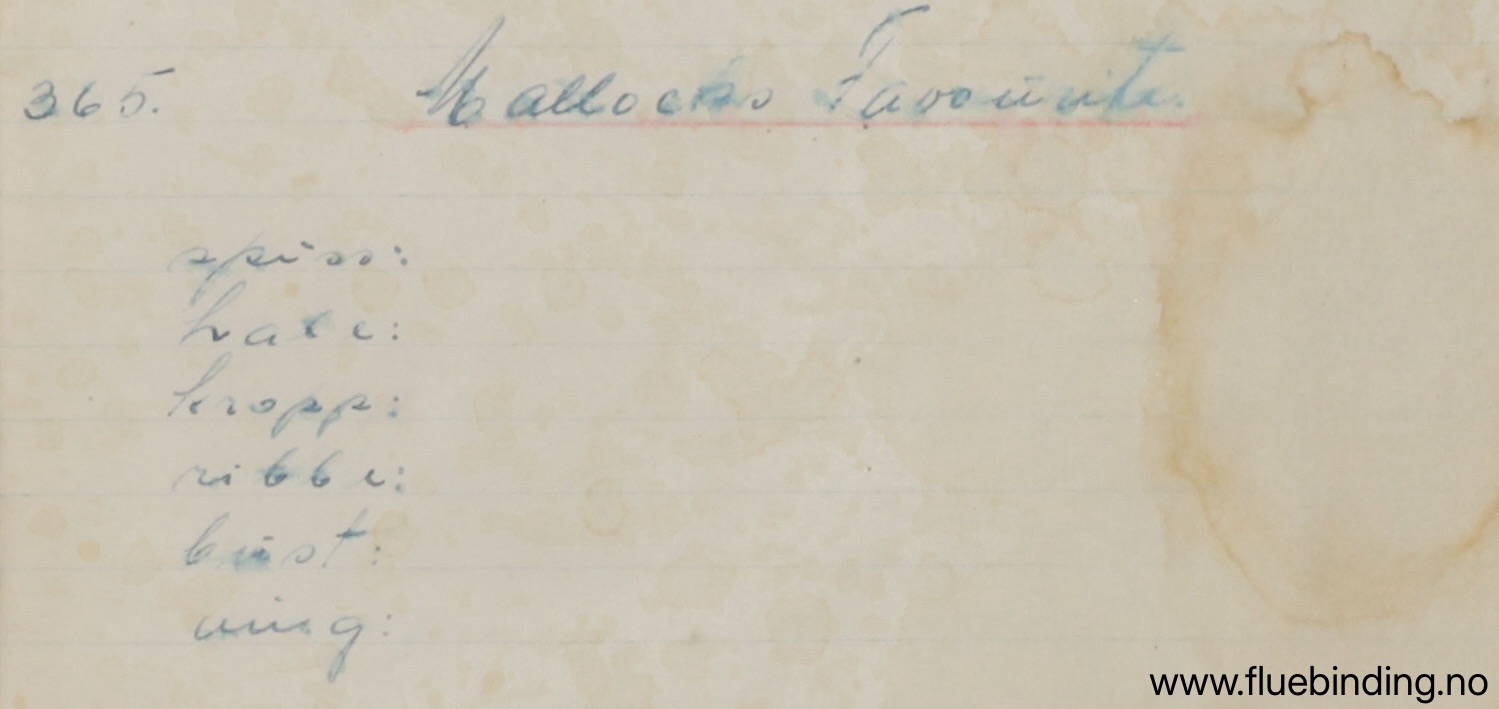 365. Mallocks Favourite.
spiss:
hale:
kropp:
ribbe:
bust:
ving:
www.fluebinding.no